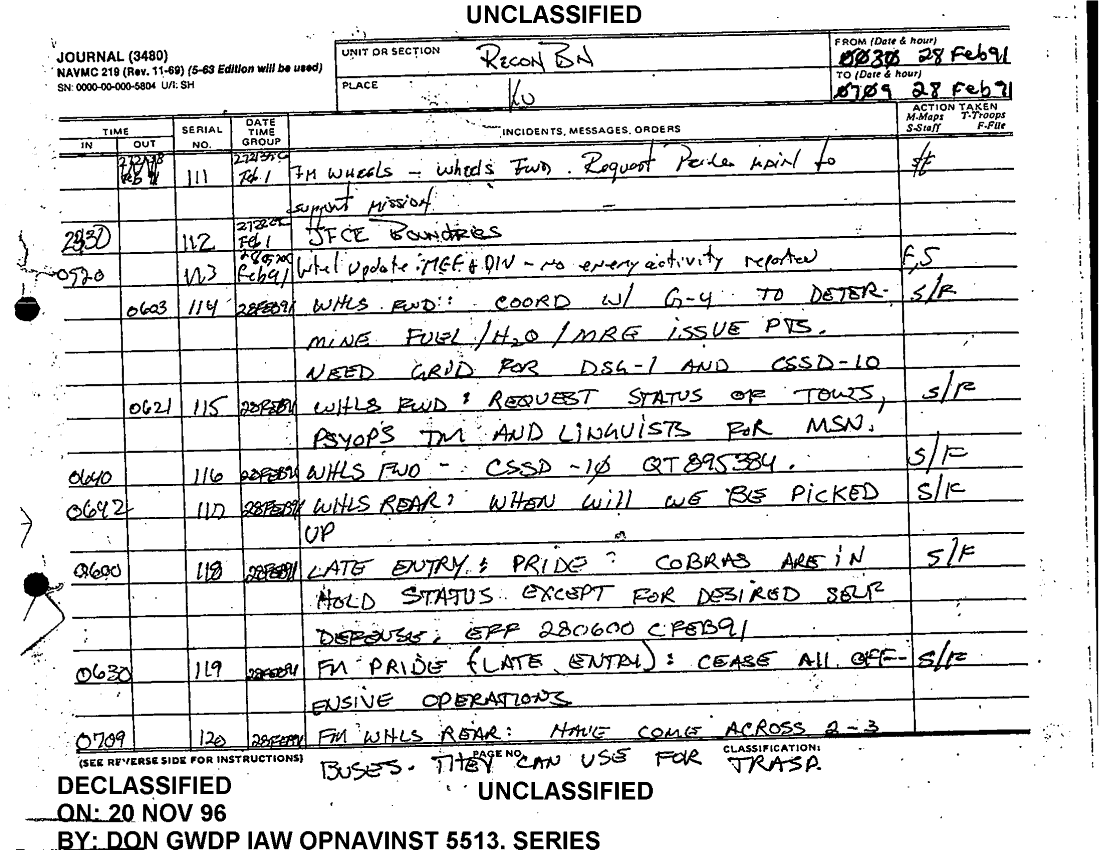 UNCLASSIFIED
JOURNAL (3480)
NAVMC 219 (Rev. 11-69) (5-63 Edition will be used)
SN: 0000-00-000-5804 U/I: SH
UNIT OR SECTION
Recon BN
PLACE
KU
FROM (Date & hour)
0030 28 Feb91
TO (Date & hour)
0709 28 Feb91
TIME
IN OUT
SERIAL NO.
DATE TIME GROUP
INCIDENTS, MESSAGES, ORDERS
ACTION TAKEN
M-Maps T-Troops
S-Staff F-File
111 FM WHEELS - wheels FWD. Request
support mission
2330 112 JFCE BOUNDRIES
0520 113 Feb91 Intel Update: MEF & DIV - no enemy activity reported F,S
0603 114 28FEB91 WHLS FWD: COORD W/ G-4 TO DETER- S/F
MINE FUEL/H2O/MRE ISSUE PTS.
NEED GRID FOR DSG-1 AND CSSD-10
0621 115 28FEB91 WHLS FWD: REQUEST STATUS OF TOWS, S/F
PSYOPS TM AND LINGUISTS FOR MSN.
0640 116 28FEB91 WHLS FWD - CSSD-10 QT895384. S/F
0642 117 28FEB91 WHLS REAR: WHEN Will WE BE PICKED S/F
UP
0600 118 28FEB91 LATE ENTRY: PRIDE: COBRAS ARE IN S/F
HOLD STATUS EXCEPT FOR DESIRED SELF
DEFENSE. EFF 280600 C FEB91
0630 119 28FEB91 FM PRIDE (LATE ENTRY): CEASE All OFF- S/F
ENSIVE OPERATIONS
0709 120 28FEB91 FM WHLS REAR: HAVE COME ACROSS 2-3
BUSES. THEY CAN USE FOR TRASP.
(SEE REVERSE SIDE FOR INSTRUCTIONS)
PAGE NO.
CLASSIFICATION:
DECLASSIFIED
UNCLASSIFIED
ON: 20 NOV 96
BY: DON GWDP IAW OPNAVINST 5513. SERIES